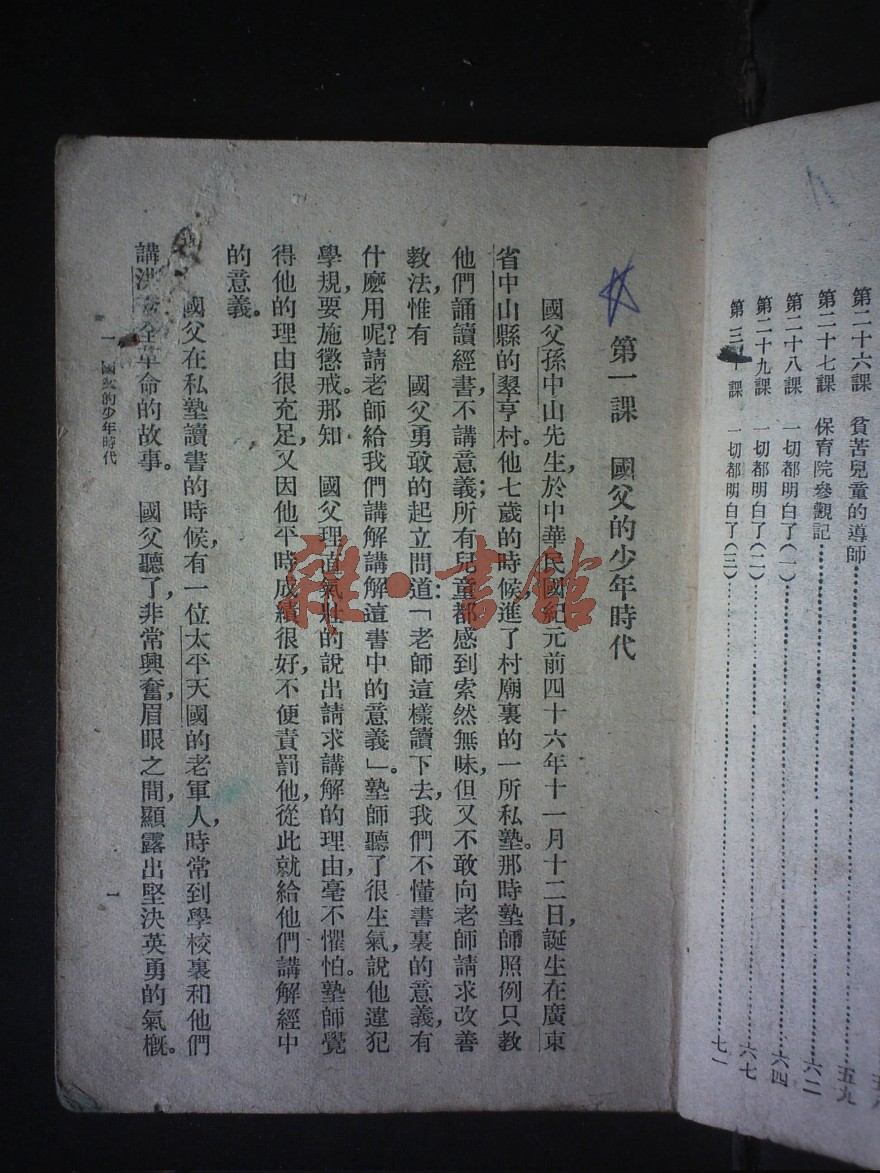 第二十六課　貧苦兒童的導師………五九
第二十七課　保育院參觀記………六二
第二十八課　一切都明白了(一)………六四
第二十九課　一切都明白了(二)………六七
第三十課　一切都明白了(三)………七一
第一課　國父的少年時代
國父孫中山先生，於中華民國紀元前四十六年十一月十二日，誕生在廣東
省中山縣的翠亨村。他七歲的時候，進了村廟裏的一所私塾。那時塾師照例只教
他們誦讀經書，不講意義；所有兒童都感到索然無味，但又不敢向老師請求改善
教法，惟有　國父勇敢的起立問道：「老師這樣讀下去，我們不懂書裏的意義，有
什麼用呢？請老師給我們講解講解這書中的意義」。塾師聽了很生氣，說他違犯
學規，要施懲戒。那知　國父理直氣壯的說出請求講解的理由，毫不懼怕。塾師覺
得他的理由很充足，又因他平時成績很好，不便責罰他，從此就給他們講解經中
的意義。
國父在私塾讀書的時候，有一位太平天國的老軍人，時常到學校裏和他們
講洪全革命的故事。　國父聽了，非常興奮，眉眼之間，顯露出堅決英勇的氣概。
一　國父的少年時代　一
雜·書館